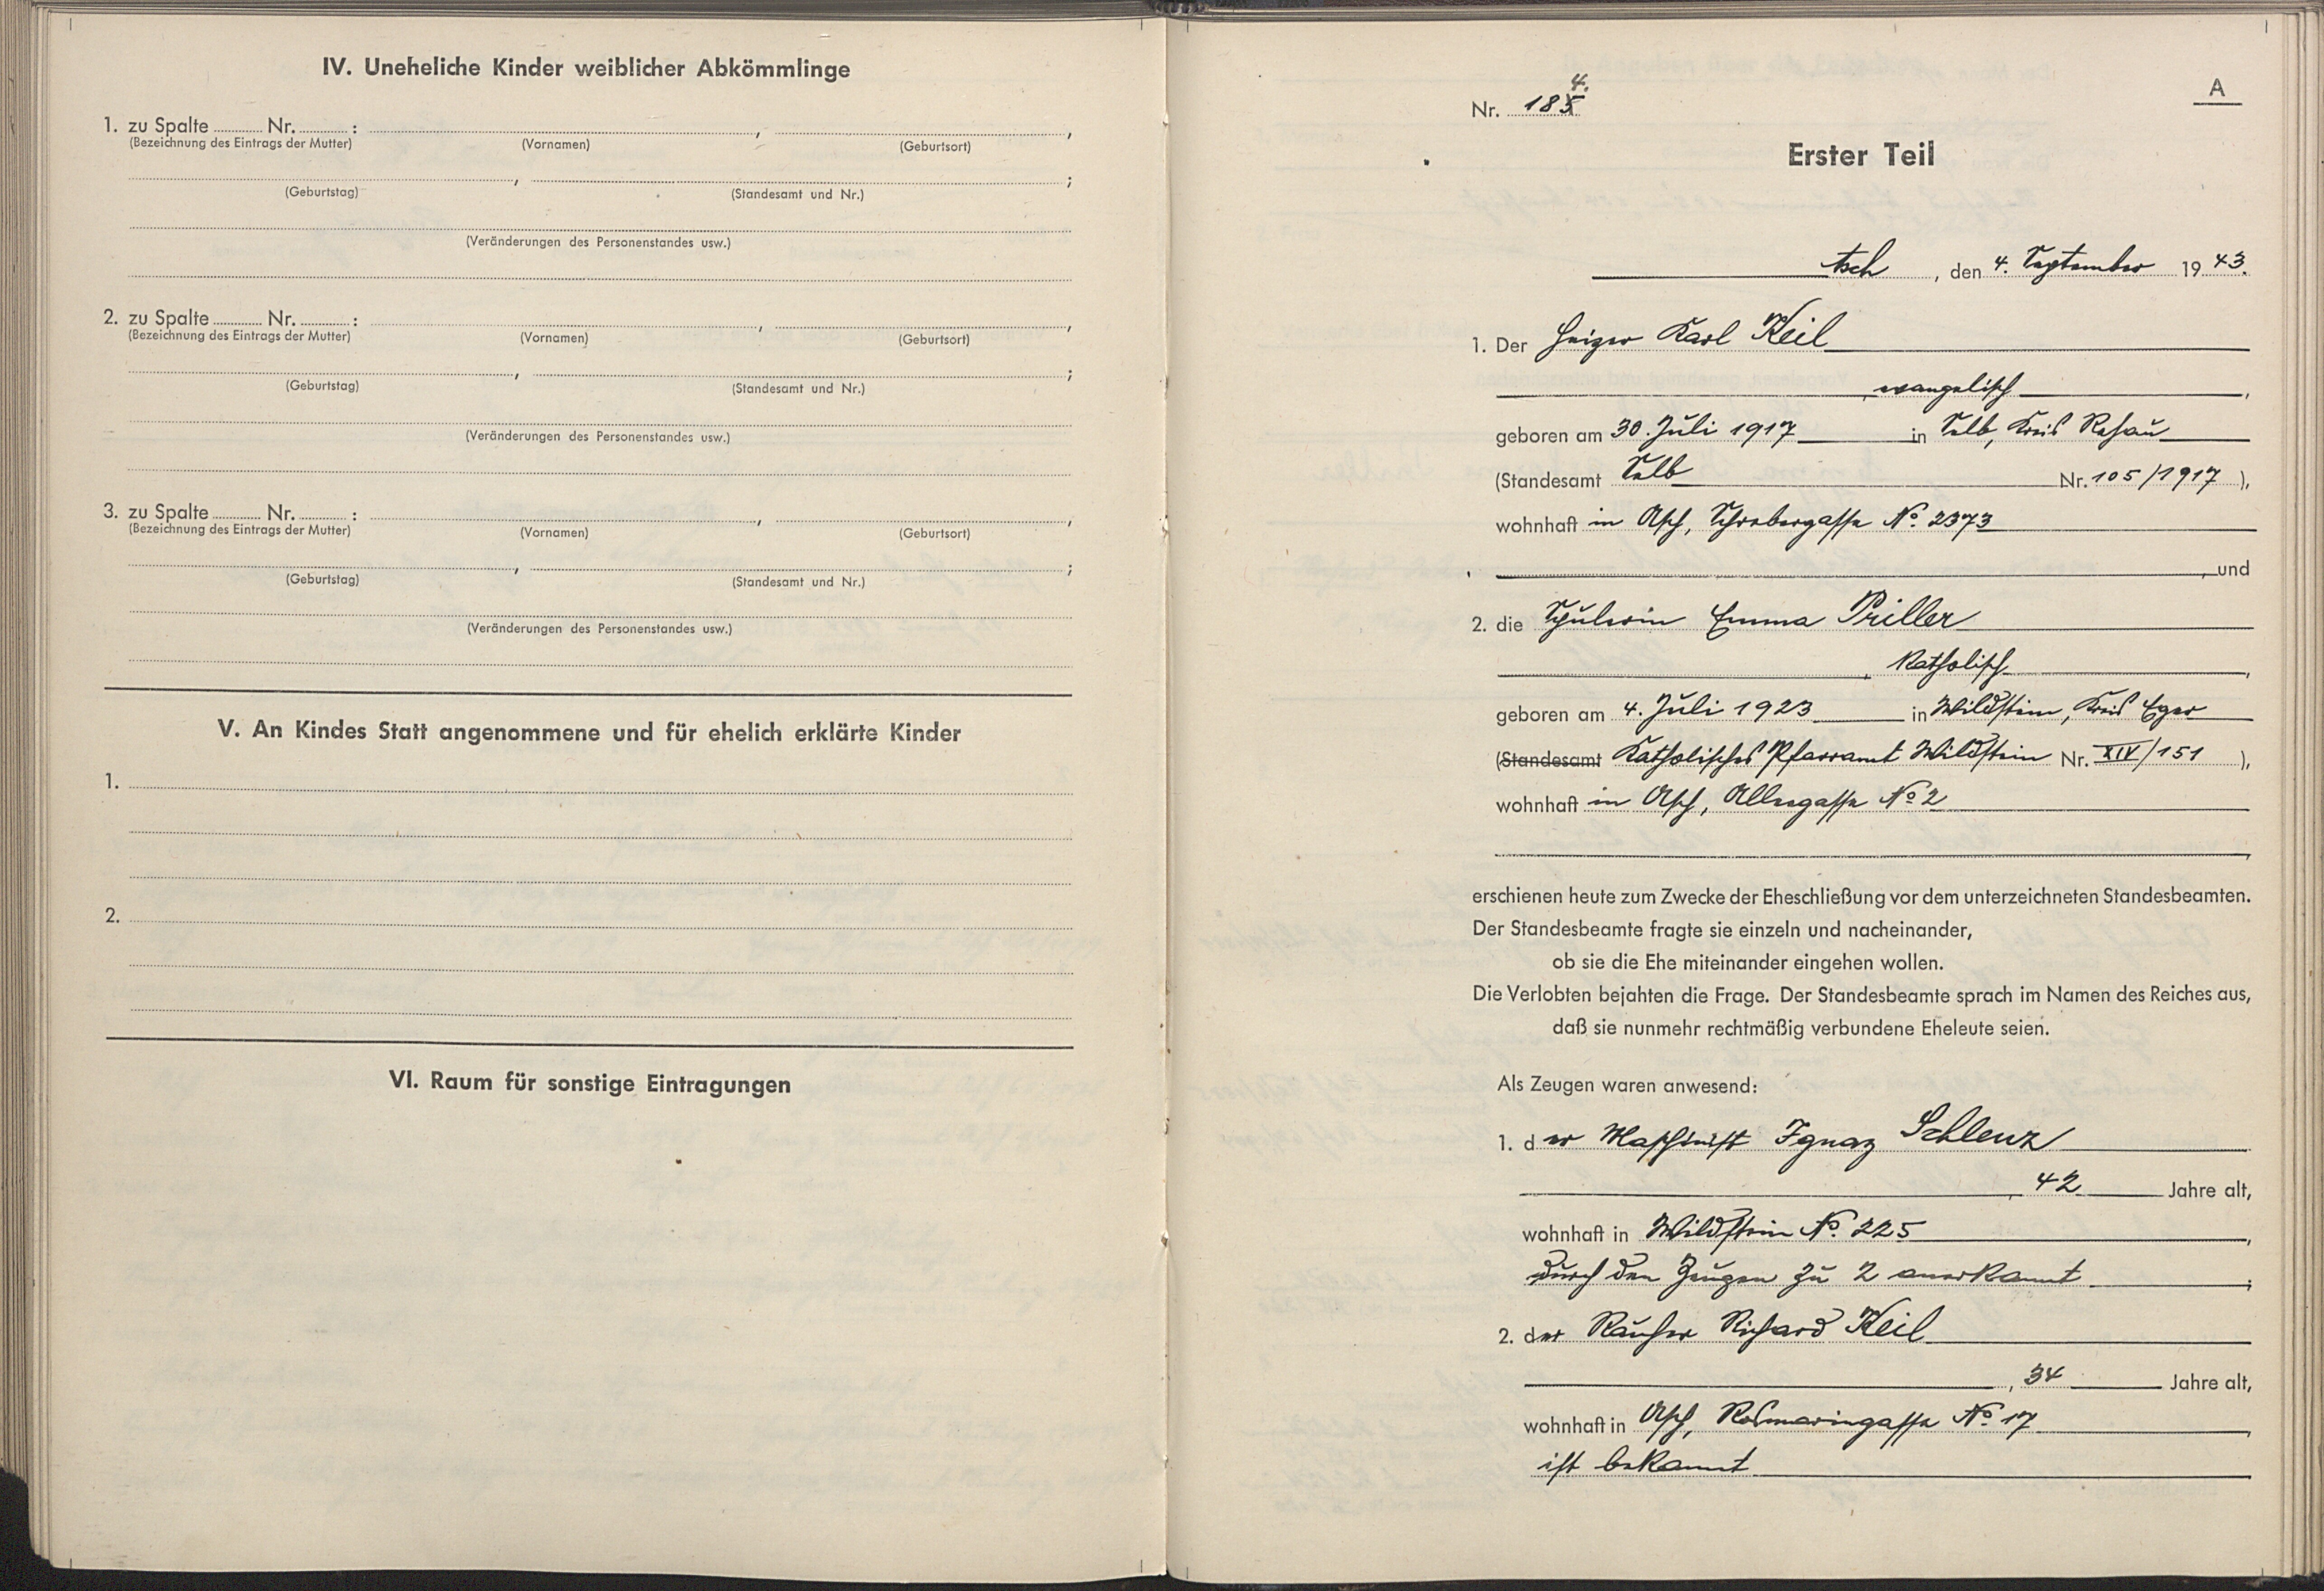 IV. Uneheliche Kinder weiblicher Abkömmlinge
1. zu Spalte ........ Nr. ........ : ........ , ........ ,
(Bezeichnung des Eintrags der Mutter) (Vornamen) (Geburtsort)
........ , ........ ;
(Geburtstag) (Standesamt und Nr.)
(Veränderungen des Personenstandes usw.)
2. zu Spalte ........ Nr. ........ : ........ , ........ ,
(Bezeichnung des Eintrags der Mutter) (Vornamen) (Geburtsort)
........ , ........ ;
(Geburtstag) (Standesamt und Nr.)
(Veränderungen des Personenstandes usw.)
3. zu Spalte ........ Nr. ........ : ........ , ........ ,
(Bezeichnung des Eintrags der Mutter) (Vornamen) (Geburtsort)
........ , ........ ;
(Geburtstag) (Standesamt und Nr.)
(Veränderungen des Personenstandes usw.)
V. An Kindes Statt angenommene und für ehelich erklärte Kinder
1.
2.
VI. Raum für sonstige Eintragungen
A
4.
Nr. 185
Erster Teil
Asch, den 4. September 1943.
1. Der Heizer Karl Keil
, evangelisch ,
geboren am 30. Juli 1917 in Selb, Kreis Rehau
(Standesamt Selb Nr. 105/1917 ),
wohnhaft in Asch, Schrebergasse No. 2373
, und
2. die Spulerin Emma Priller
, katholisch ,
geboren am 4. Juli 1923 in Wildstein, Kreis Eger
(Standesamt Katholisches Pfarramt Wildstein Nr. XIV/151 ),
wohnhaft in Asch, Alleegasse No 2
,
erschienen heute zum Zwecke der Eheschließung vor dem unterzeichneten Standesbeamten.
Der Standesbeamte fragte sie einzeln und nacheinander,
ob sie die Ehe miteinander eingehen wollen.
Die Verlobten bejahten die Frage. Der Standesbeamte sprach im Namen des Reiches aus,
daß sie nunmehr rechtmäßig verbundene Eheleute seien.
Als Zeugen waren anwesend:
1. der Maschinist Ignaz Schlenz
, 42 Jahre alt,
wohnhaft in Wildstein No. 225 ,
durch den Zeugen zu 2 anerkannt ;
2. der Rauher Richard Keil
, 34 Jahre alt,
wohnhaft in Asch, Rosmaringasse No. 17 ,
ist bekannt